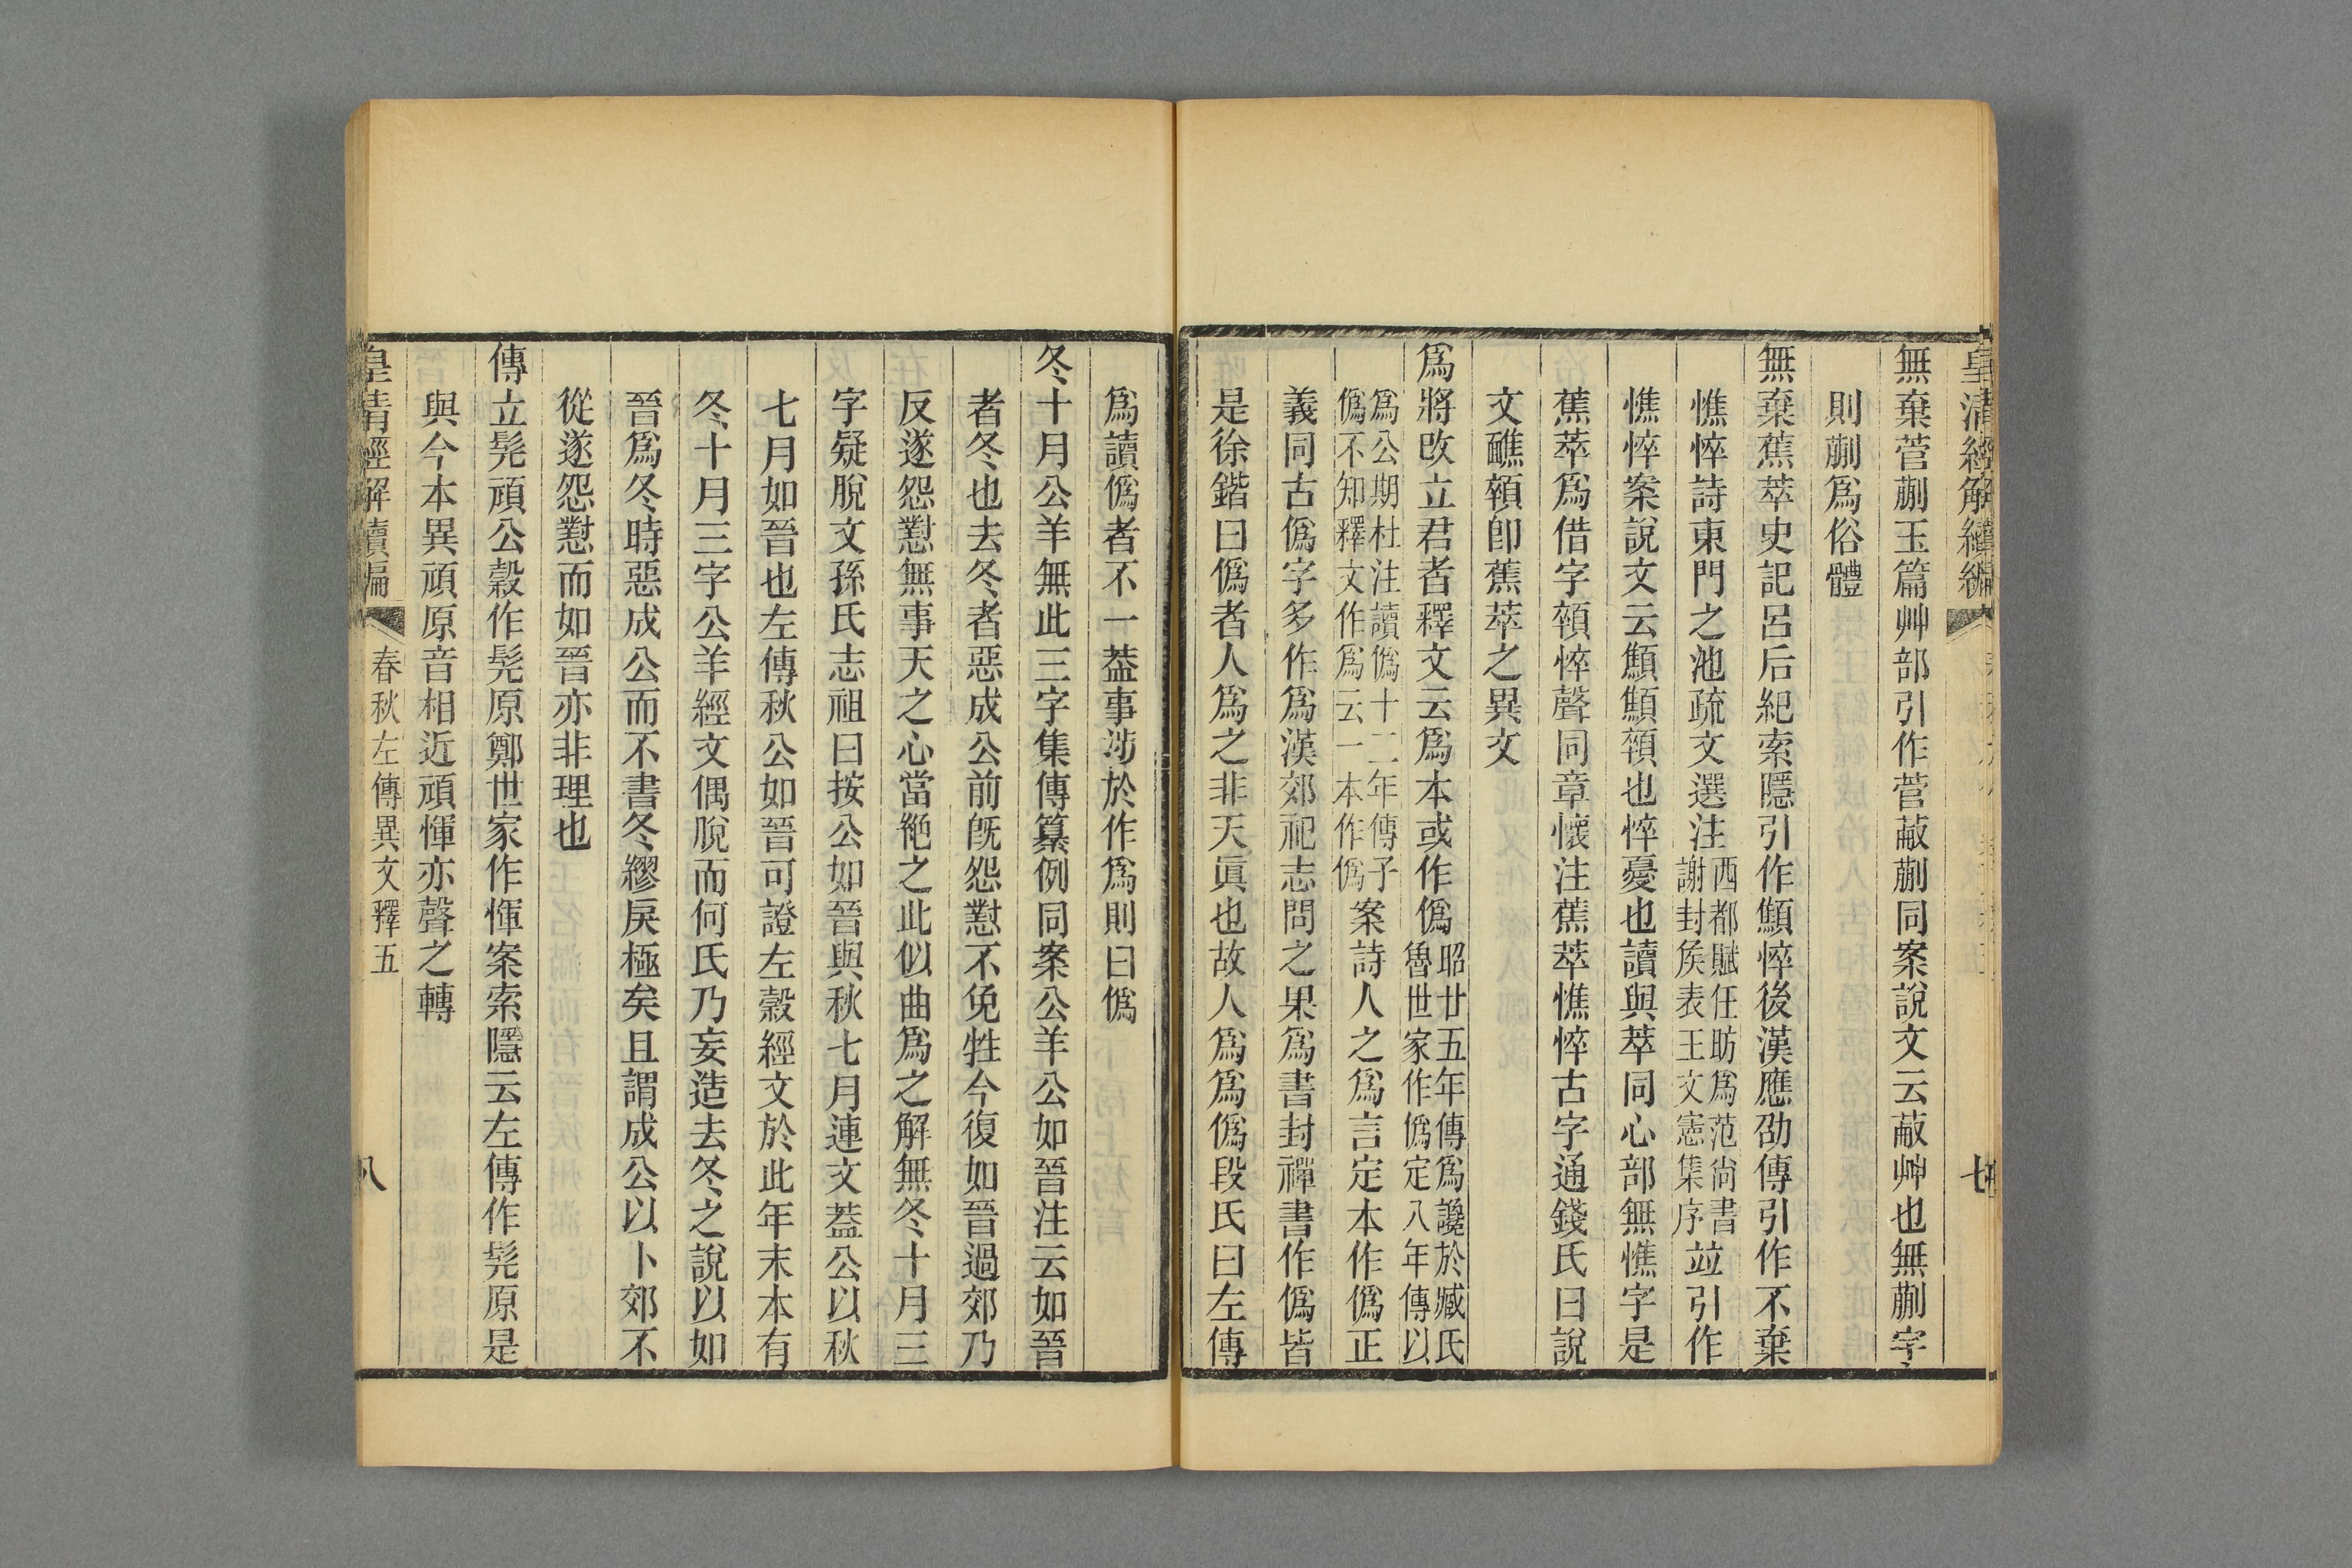 皇清經解續編
七
無棄菅蒯玉篇艸部引作菅蔽蒯同案說文云蔽艸也無蒯字
則蒯爲俗體
無棄蕉萃史記呂后紀索隱引作顦悴後漢應劭傳引作不棄
憔悴詩東門之池疏文選注西都賦任昉爲范尙書謝封矦表王文憲集序竝引作
憔悴案說文云顦顦顇也悴憂也讀與萃同心部無憔字是
蕉萃爲借字顇悴聲同章懷注蕉萃憔悴古字通錢氏曰說
文醮顇卽蕉萃之異文
爲將改立君者釋文云爲本或作僞昭廿五年傳爲讒於臧氏魯世家作僞定八年傳以
爲公期杜注讀僞十二年傳子僞不知釋文作爲云一本作僞案詩人之爲言定本作僞正
義同古僞字多作爲漢郊祀志問之果爲書封禪書作僞皆
是徐鍇曰僞者人爲之非天眞也故人爲爲僞段氏曰左傳
爲讀僞者不一葢事涉於作爲則曰僞
冬十月公羊無此三字集傳纂例同案公羊公如晉注云如晉
者冬也去冬者惡成公前旣怨懟不免牲今復如晉過郊乃
反遂怨懟無事天之心當絶之此似曲爲之解無冬十月三
字疑脫文孫氏志祖曰按公如晉與秋七月連文葢公以秋
七月如晉也左傳秋公如晉可證左穀經文於此年末本有
冬十月三字公羊經文偶脫而何氏乃妄造去冬之說以如
晉爲冬時惡成公而不書冬繆戾極矣且謂成公以卜郊不
從遂怨懟而如晉亦非理也
傳立髡頑公穀作髡原鄭世家作惲案索隱云左傳作髡原是
與今本異頑原音相近頑惲亦聲之轉
皇清經解續編
春秋左傳異文釋五
八